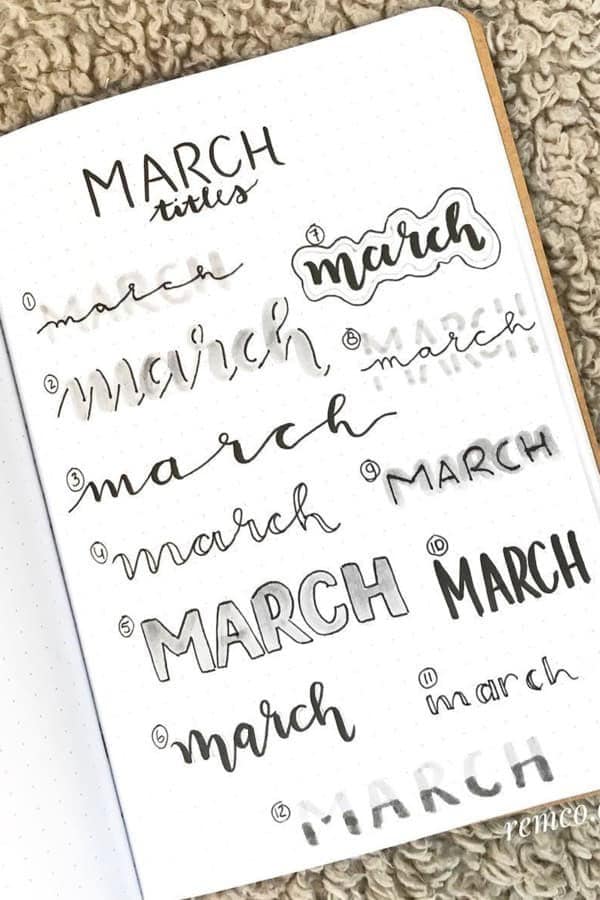 MARCH
titles
① MARCH march
② march
③ march
④ march
⑤ MARCH
⑥ march
⑦ march
⑧ MARCH march
⑨ MARCH
⑩ MARCH
⑪ march
⑫ MARCH